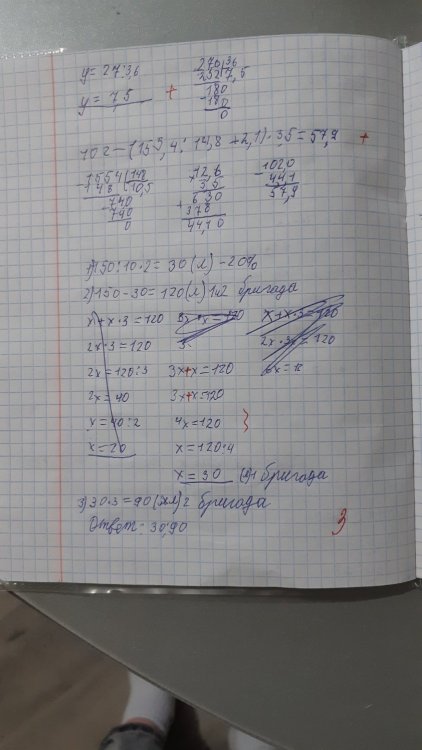 y=27:3,6
y=7,5
+
270|36
252|7,5
180
-180
0
102-(155,4:14,8+2,1)·3,5=57,9
+
-1554|148
148|10,5
-740
740
0
×12,6
3,5
+630
378
44,10
-1020
441
57,9
1)150:10·2=30(л)-20%
2)150-30=120(л)1и2 бригада
x+x·3=120
2x·3=120
2x=120:3
2x=40
x=40:2
x=20
3x+x=120
3x+x=120
4x=120
x=120:4
x=30 (л)1 бригада
x+x·3=120
3)30·3=90(л)2 бригада
Ответ: 30,90
3